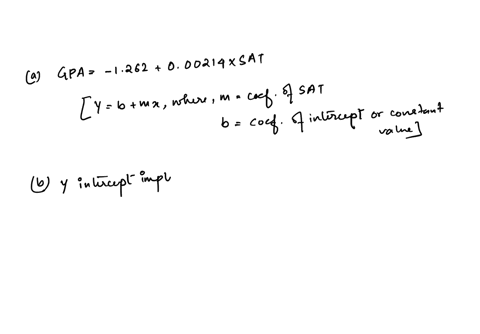 (a) GPA = -1.262 + 0.00214 × SAT
[Y = b + mx, where, m = coef. of SAT
b = coef. of intercept or constant
value]
(b) Y intercept impl